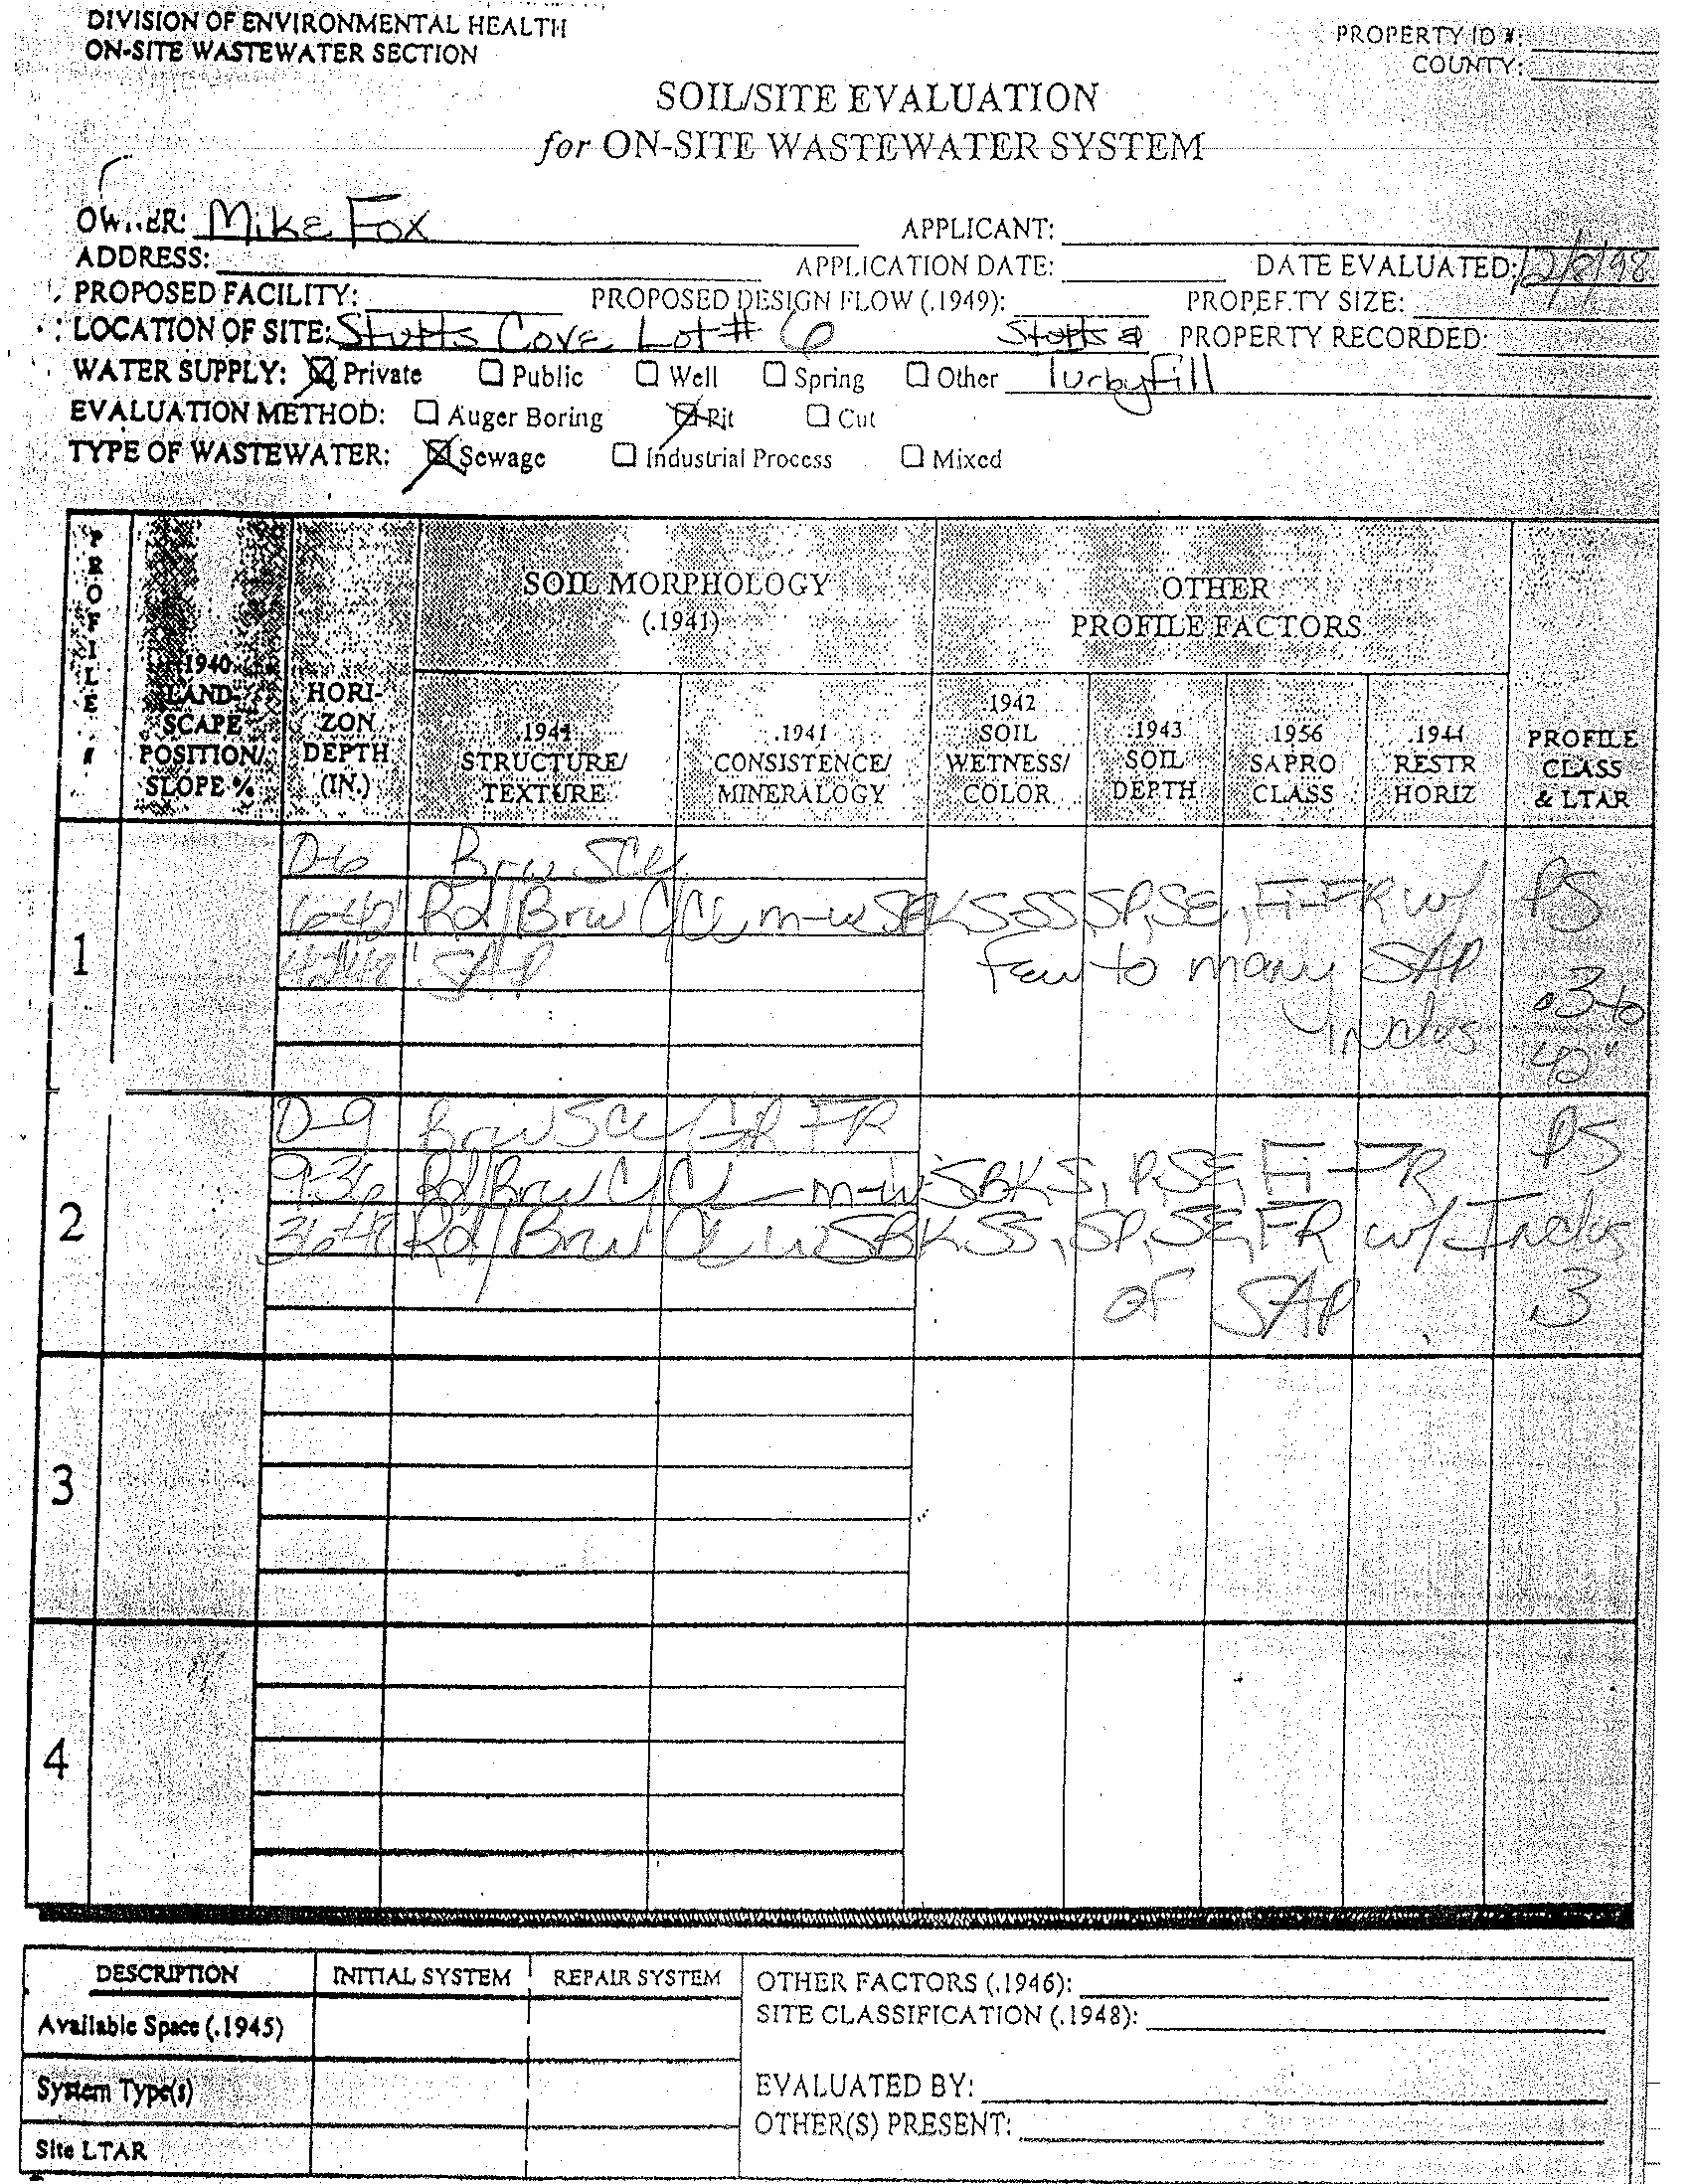 DIVISION OF ENVIRONMENTAL HEALTH
ON-SITE WASTEWATER SECTION
PROPERTY ID #:
COUNTY:
SOIL/SITE EVALUATION
for ON-SITE WASTEWATER SYSTEM
OWNER: Mike Fox
APPLICANT:
ADDRESS: APPLICATION DATE: DATE EVALUATED: 12/8/98
PROPOSED FACILITY: PROPOSED DESIGN FLOW (.1949): PROPERTY SIZE:
LOCATION OF SITE: Stutts Cove Lot # 6 Stutts & PROPERTY RECORDED:
WATER SUPPLY: ☒ Private ☐ Public ☐ Well ☐ Spring ☐ Other Turbyfill
EVALUATION METHOD: ☐ Auger Boring ☒ Pit ☐ Cut
TYPE OF WASTEWATER: ☒ Sewage ☐ Industrial Process ☐ Mixed
PROFILE #
.1940 LAND-SCAPE POSITION/ SLOPE %
HORI-ZON DEPTH (IN.)
SOIL MORPHOLOGY (.1941)
OTHER PROFILE FACTORS
.1941 STRUCTURE/ TEXTURE
.1941 CONSISTENCE/ MINERALOGY
.1942 SOIL WETNESS/ COLOR
.1943 SOIL DEPTH
.1956 SAPRO CLASS
.1944 RESTR HORIZ
PROFILE CLASS & LTAR
1
0-6 Brw SCL
6-42" Rd/Brw C/CL m-wSBK S-SS, SP, SE, Fi-FR w/ PS
42-48" SAP few to many SAP .3 to
Inclus 42"
2
0-9 Brw SCL GR FR PS
9-36 Rd/Brw C/CL - m-wSBK S, P, SE, Fi-FR
36-48 Rd/Brw CL wSBK SS, SP, SE, FR w/ Inclus
of SAP .3
3
4
DESCRIPTION INITIAL SYSTEM REPAIR SYSTEM
OTHER FACTORS (.1946):
SITE CLASSIFICATION (.1948):
Available Space (.1945)
System Type(s)
EVALUATED BY:
OTHER(S) PRESENT:
Site LTAR